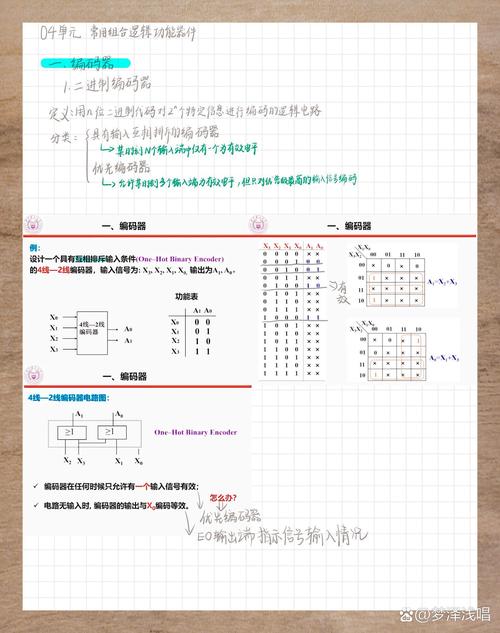 04单元 常用组合逻辑功能器件
一.编码器
1.二进制编码器
定义:用n位二进制代码对2ⁿ个特定信息进行编码的逻辑电路
分类: 具有输入互相排斥的编码器
某时刻N个输入端中仅有一个为有效电平
优先编码器
允许某时刻多个输入端为有效电平,但只对优先级最高的输入信号编码
一、编码器
例:
设计一个具有互相排斥输入条件(One–Hot Binary Encoder)
的4线—2线编码器,输入信号为: X₃, X₂, X₁, X₀, 输出为A₁, A₀。
功能表
A₁ A₀
X₀ 0 0
X₁ 0 1
X₂ 1 0
X₃ 1 1
X₀
X₁
X₂
X₃
4线—2线
编码器
A₀
A₁
一、编码器
X₃ X₂ X₁ X₀ A₁ A₀
0 0 0 0 × ×
0 0 0 1 0 0
0 0 1 0 0 1
0 0 1 1 × ×
0 1 0 0 1 0
0 1 0 1 × ×
0 1 1 0 × ×
0 1 1 1 × ×
1 0 0 0 1 1
1 0 0 1 × ×
1 0 1 0 × ×
1 0 1 1 × ×
1 1 0 0 × ×
1 1 0 1 × ×
1 1 1 0 × ×
1 1 1 1 × ×
有效
X₁X₀
X₃X₂
00 01 11 10
00
01
11
10
A₁=X₂+X₃
X₁X₀
X₃X₂
00 01 11 10
00
01
11
10
A₀=X₁+X₃
一、编码器
4线—2线编码器电路图:
A₁ A₀
≥1 ≥1
X₂ X₃ X₁ X₀
One–Hot Binary Encoder
✓ 编码器在任何时候只允许有一个输入信号有效;
✓ 电路无输入时, 编码器的输出与X₀编码等效。
怎么办?
优先编码器
EO输出端指示信号输入情况
@梦泽浅唱